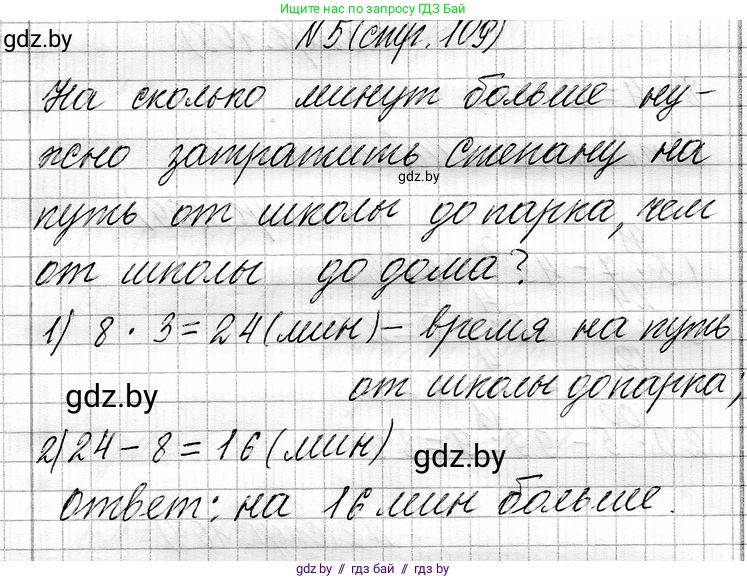 Ищите нас по запросу ГДЗ БАЙ
gdz.by
N5 (стр. 109)
На сколько минут больше ну-
жно затратить Степану на
gdz.by
путь от школы до парка, чем
от школы до дома?
1) 8 · 3 = 24 (мин) – время на путь
gdz.by
от школы до парка;
2) 24 – 8 = 16 (мин)
gdz.by
ответ: на 16 мин больше.
gdz.by // гдз бай // гдз by